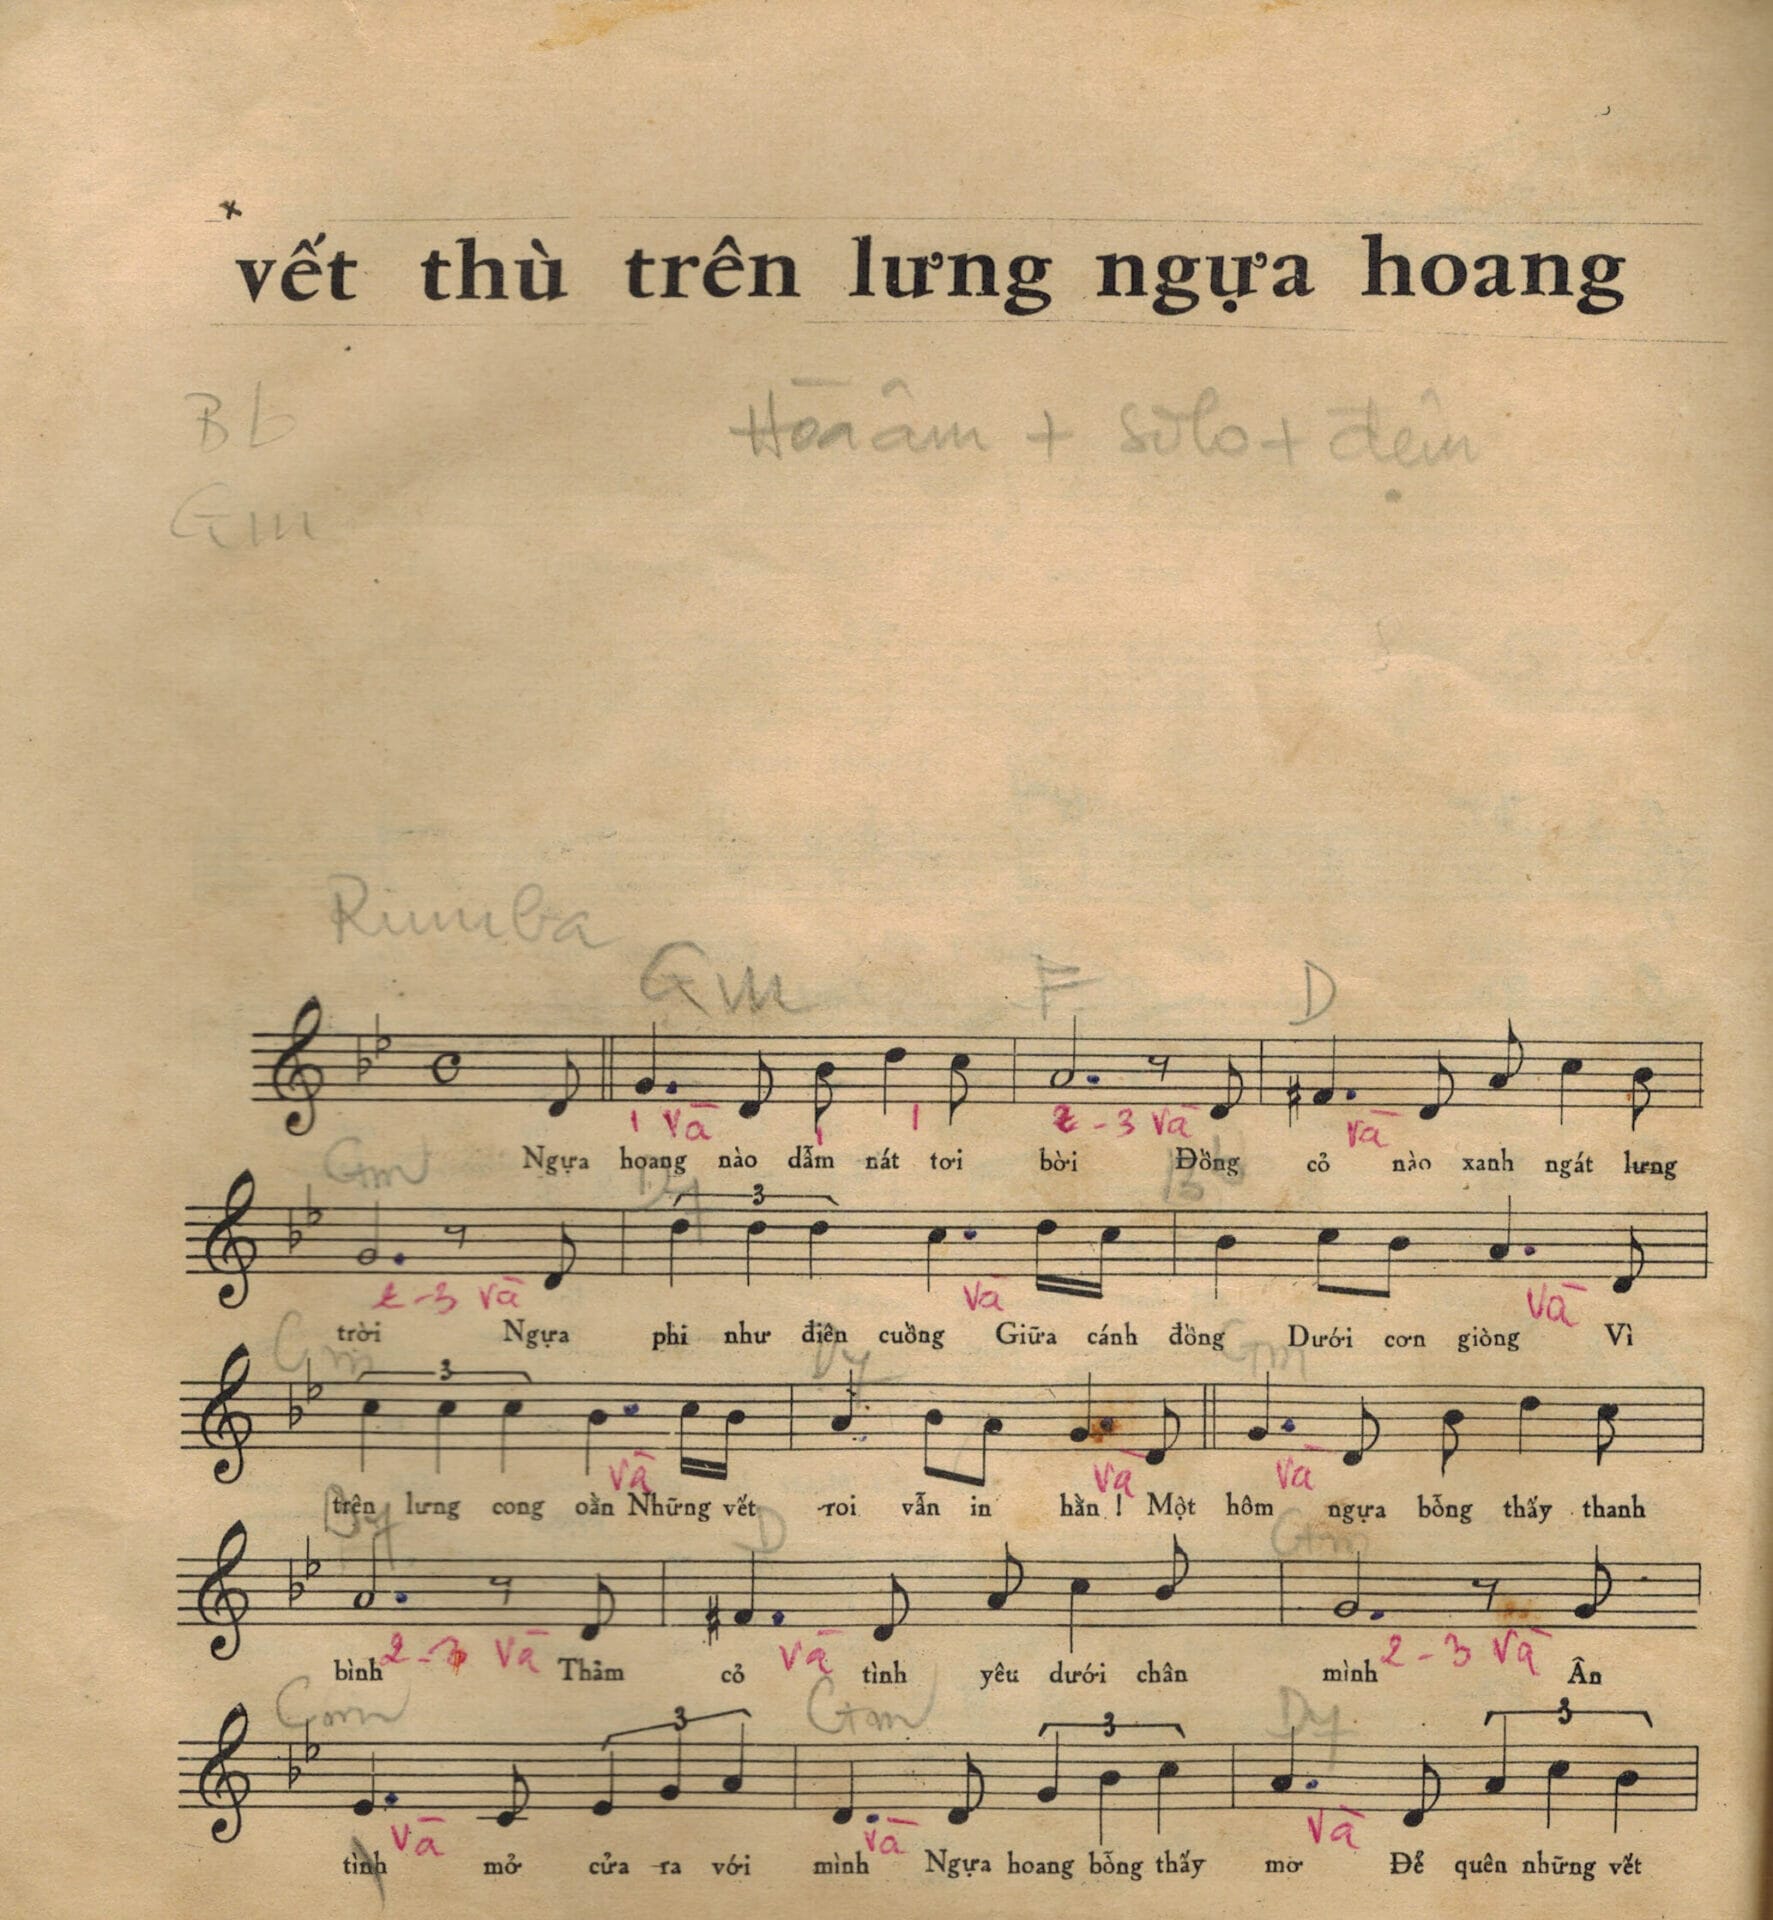 x
vết thù trên lưng ngựa hoang
Bb
Hòa âm + sôlo + đệm
Gm
Rumba
Gm F D
1 và 1 1 2-3 và và
Ngựa hoang nào dẫm nát tơi bời Đồng cỏ nào xanh ngát lưng
Gm D7 Bb
3
2-3 và và và
trời Ngựa phi như điên cuồng Giữa cánh đồng Dưới cơn giông Vì
Cm D7 Gm
3
và và và
trên lưng cong oằn Những vết roi vẫn in hằn ! Một hôm ngựa bỗng thấy thanh
D7 D Gm
2-3 và và 2-3 và
bình Thảm cỏ tình yêu dưới chân mình Ân
Cm Gm D7
3 3 3
và và và
tình mở cửa ra với mình Ngựa hoang bỗng thấy mơ Để quên những vết